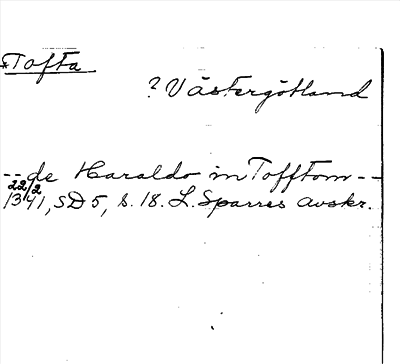 *Tofta
? Västergötland
-- de Haraldo in Tofftom --
22/2 1341, SD 5, s. 18. L. Sparres avskr.